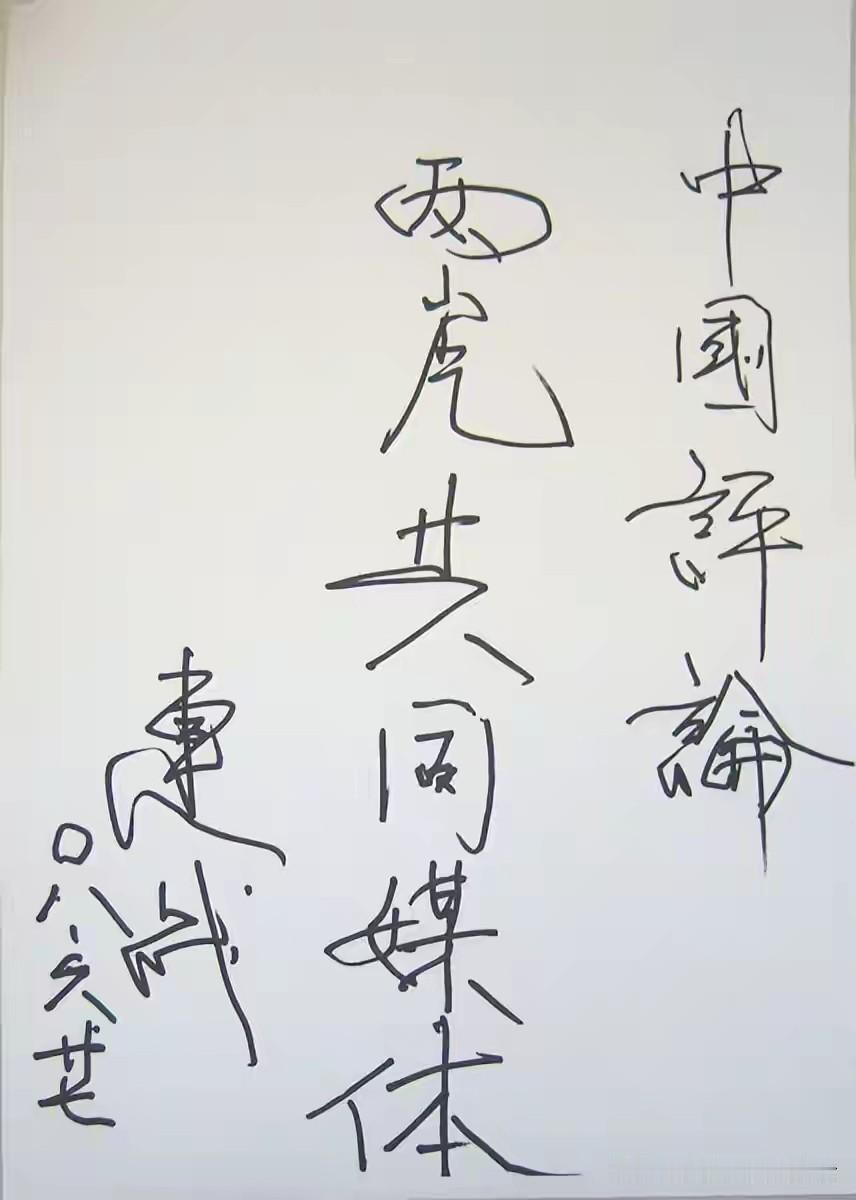 中國評論
两岸共同媒体
連战
〇八六廿七